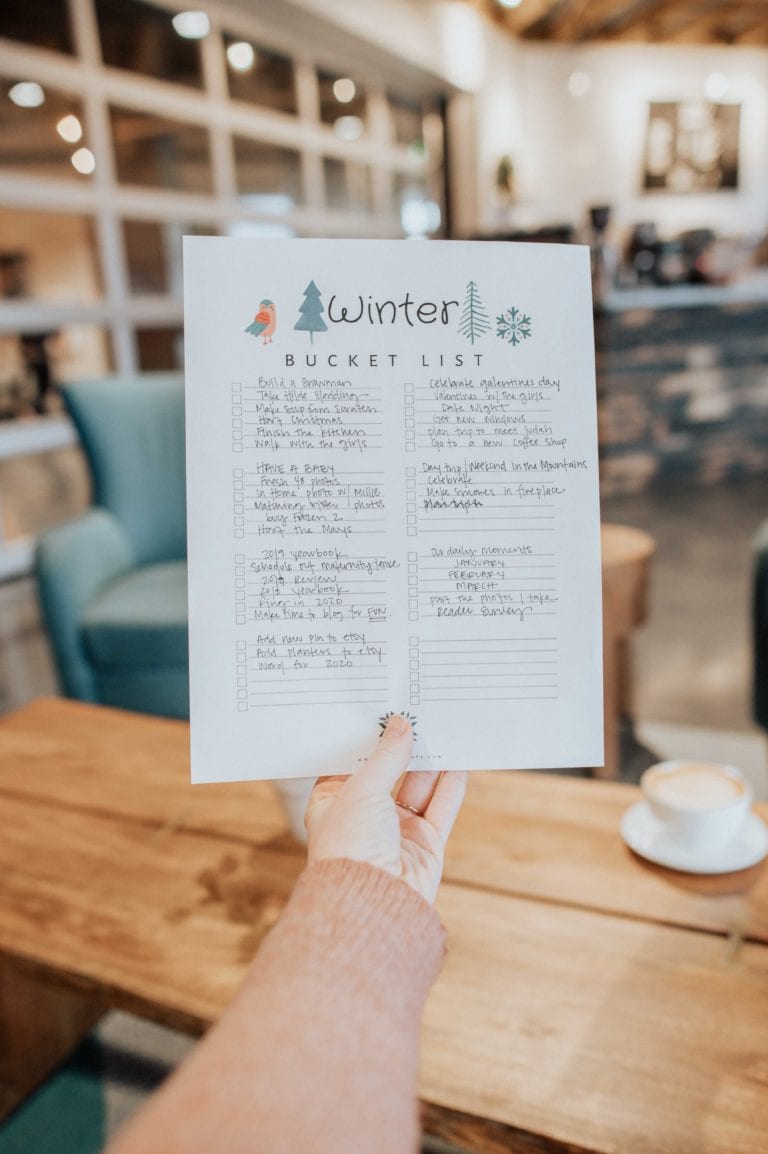 Winter
BUCKET LIST
Build a Snowman
Take Millie Sledding
Make Soup from Scratch
Host Christmas
Finish the Kitchen
Walk with the girls
HAVE A BABY
Fresh 48 photos
In Home photo w/ Millie
Matching Sister photos
buy Frozen 2
Host the Mays
2019 yearbook
Schedule out maternity leave
2019 Review
yearbook
Ring in 2020
Make time to blog for FUN
Add new pin to etsy
Add planters to etsy
Word for 2020
Celebrate galentines day
Valentines w/ the girls
Date Night
Get new windows
plan trip to meet Judah
Go to a new Coffee Shop
Day trip / Weekend in the Mountains
Celebrate
Make Smores in fireplace
Our daily moments
JANUARY
FEBRUARY
MARCH
post the photos I take
Reader Survey